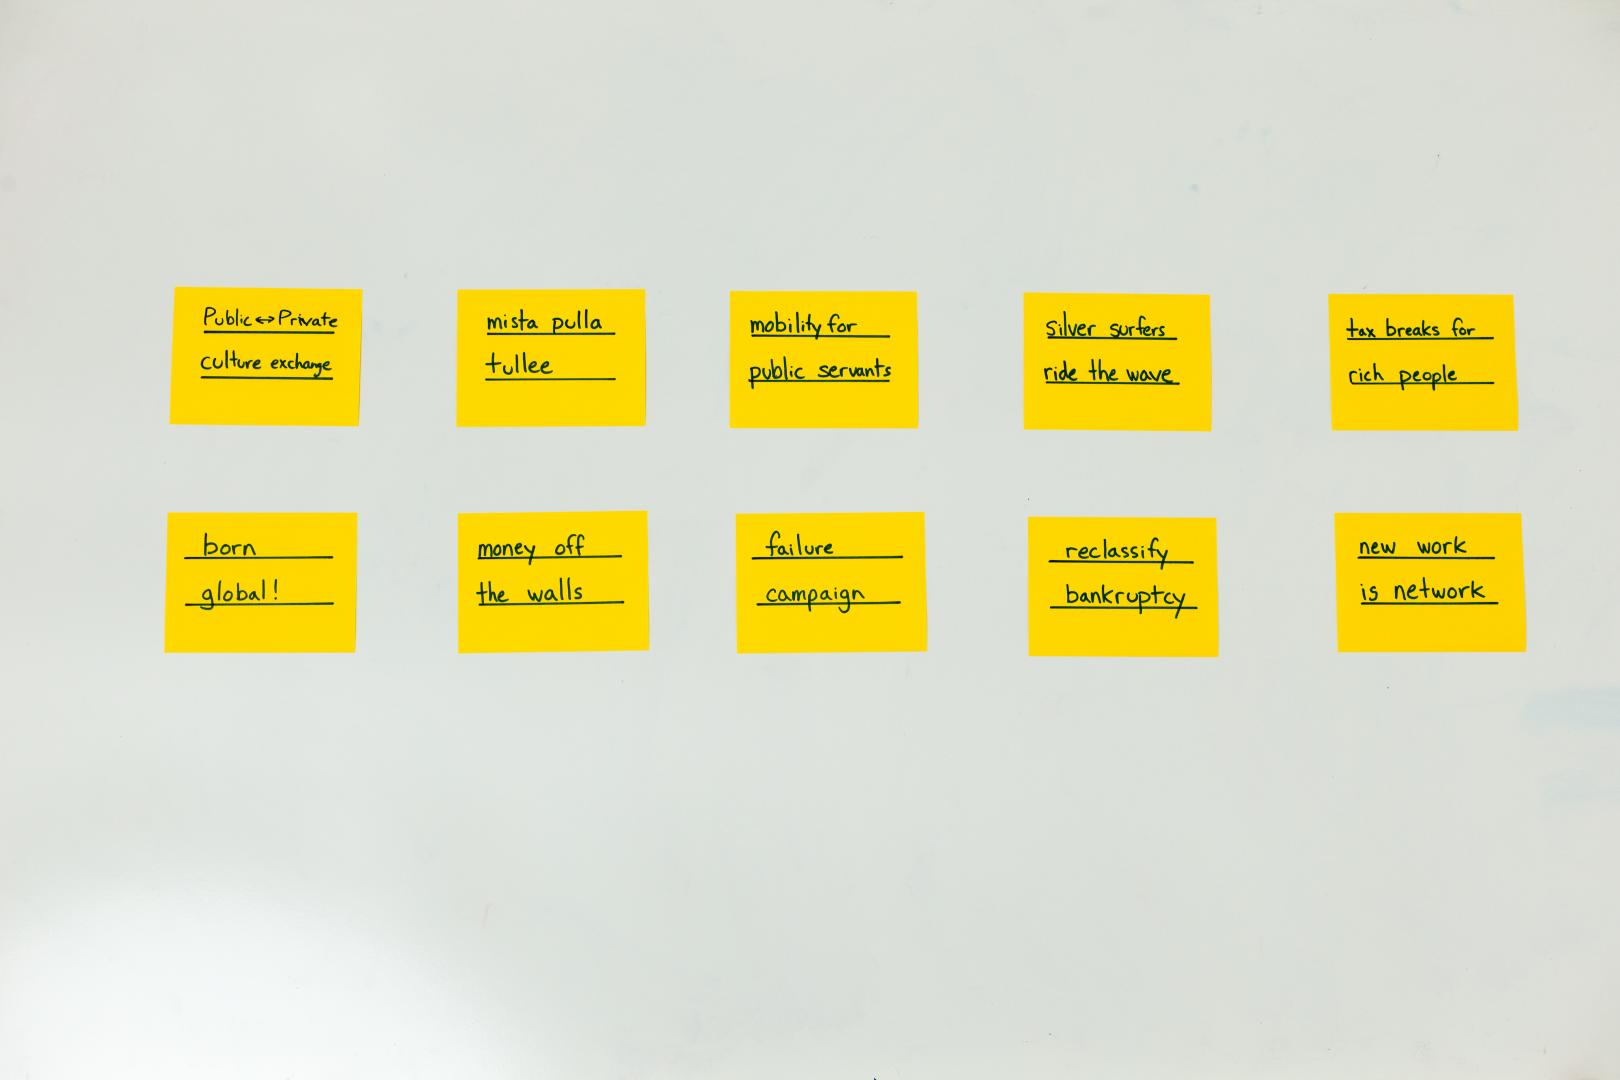 Public ↔ Private
culture exchange
mista pulla
tullee
mobility for
public servants
Silver surfers
ride the wave
tax breaks for
rich people
born
global!
money off
the walls
failure
campaign
reclassify
bankruptcy
new work
is network